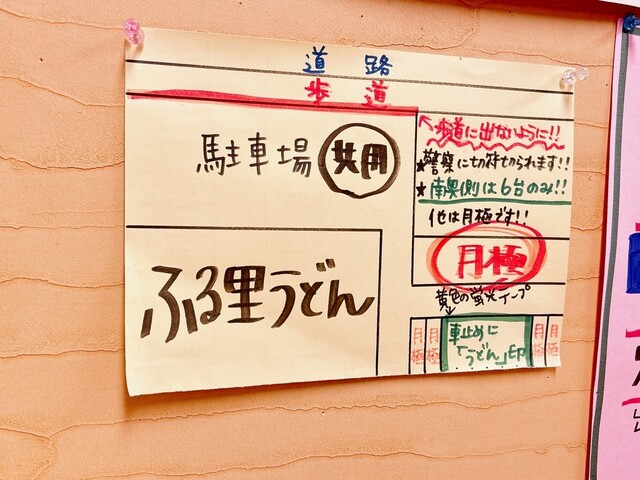 道路
歩道
駐車場 共用
歩道に出ないように!!
★警察に切符切られます!!
★南奥側は6台のみ!!
他は月極です!!
月極
黄色の蛍光テープ
ふる里うどん
月極
月極
車止めに
「うどん」印
月極
月極